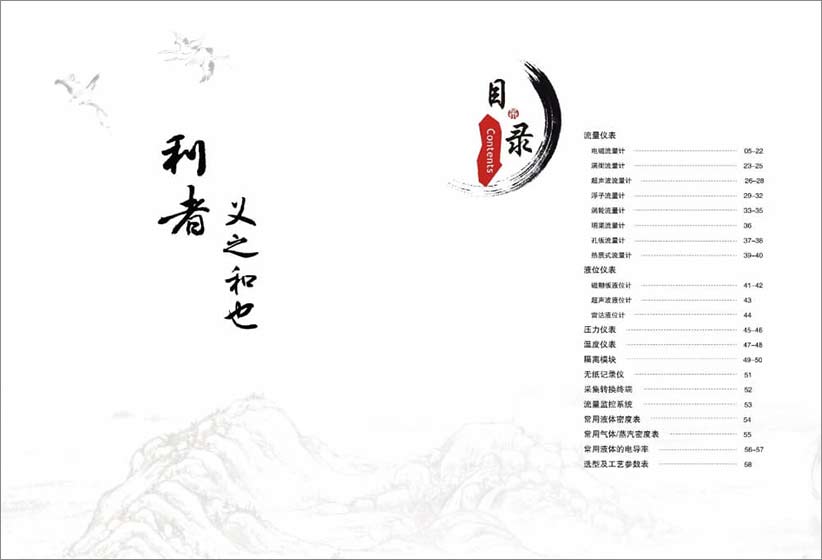 利者
义之和也
目录
Contents
流量仪表
电磁流量计 05-22
涡街流量计 23-25
超声波流量计 26-28
浮子流量计 29-32
涡轮流量计 33-35
明渠流量计 36
孔板流量计 37-38
热质式流量计 39-40
液位仪表
磁翻板液位计 41-42
超声波液位计 43
雷达液位计 44
压力仪表 45-46
温度仪表 47-48
隔离模块 49-50
无纸记录仪 51
采集转换终端 52
流量监控系统 53
常用液体密度表 54
常用气体/蒸汽密度表 55
常用液体的电导率 56-57
选型及工艺参数表 58